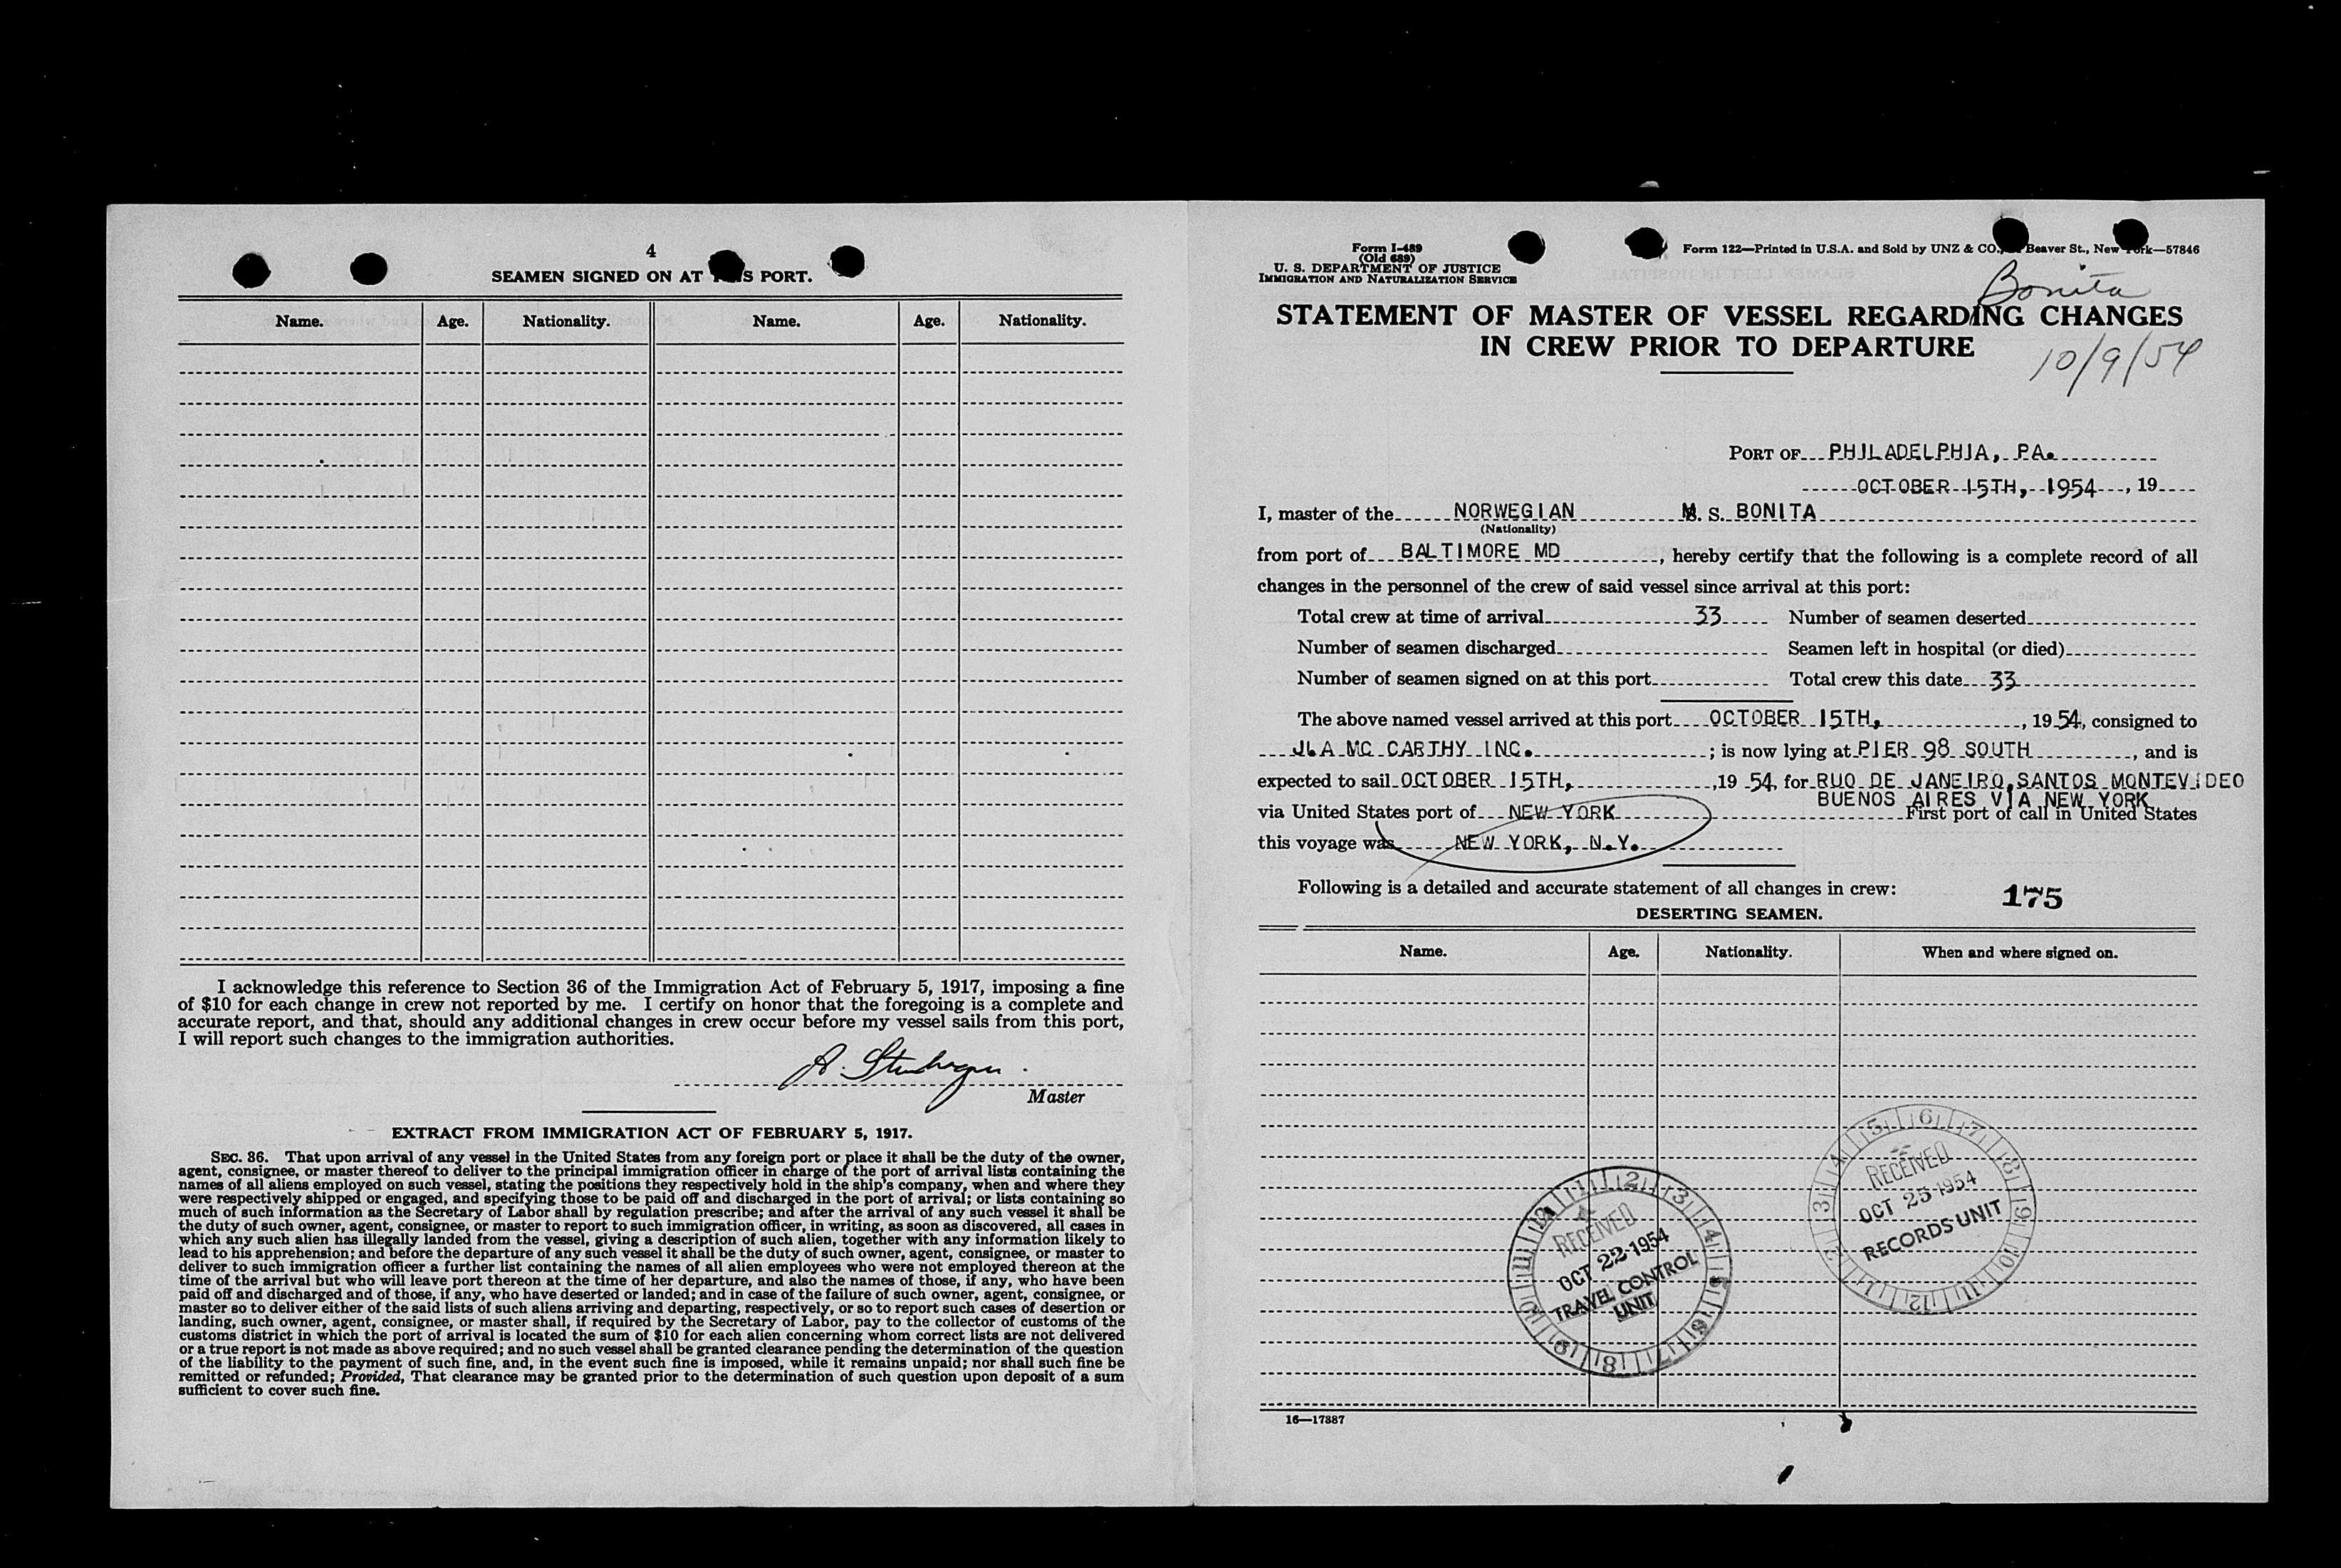 4
SEAMEN SIGNED ON AT THIS PORT.
Name. Age. Nationality. Name. Age. Nationality.
I acknowledge this reference to Section 36 of the Immigration Act of February 5, 1917, imposing a fine
of $10 for each change in crew not reported by me. I certify on honor that the foregoing is a complete and
accurate report, and that, should any additional changes in crew occur before my vessel sails from this port,
I will report such changes to the immigration authorities.
Master
EXTRACT FROM IMMIGRATION ACT OF FEBRUARY 5, 1917.
SEC. 36. That upon arrival of any vessel in the United States from any foreign port or place it shall be the duty of the owner,
agent, consignee, or master thereof to deliver to the principal immigration officer in charge of the port of arrival lists containing the
names of all aliens employed on such vessel, stating the positions they respectively hold in the ship's company, when and where they
were respectively shipped or engaged, and specifying those to be paid off and discharged in the port of arrival; or lists containing so
much of such information as the Secretary of Labor shall by regulation prescribe; and after the arrival of any such vessel it shall be
the duty of such owner, agent, consignee, or master to report to such immigration officer, in writing, as soon as discovered, all cases in
which any such alien has illegally landed from the vessel, giving a description of such alien, together with any information likely to
lead to his apprehension; and before the departure of any such vessel it shall be the duty of such owner, agent, consignee, or master to
deliver to such immigration officer a further list containing the names of all alien employees who were not employed thereon at the
time of the arrival but who will leave port thereon at the time of her departure, and also the names of those, if any, who have been
paid off and discharged and of those, if any, who have deserted or landed; and in case of the failure of such owner, agent, consignee, or
master so to deliver either of the said lists of such aliens arriving and departing, respectively, or so to report such cases of desertion or
landing, such owner, agent, consignee, or master shall, if required by the Secretary of Labor, pay to the collector of customs of the
customs district in which the port of arrival is located the sum of $10 for each alien concerning whom correct lists are not delivered
or a true report is not made as above required; and no such vessel shall be granted clearance pending the determination of the question
of the liability to the payment of such fine, and, in the event such fine is imposed, while it remains unpaid; nor shall such fine be
remitted or refunded; Provided, That clearance may be granted prior to the determination of such question upon deposit of a sum
sufficient to cover such fine.
Form I-489
(Old 689)
U. S. DEPARTMENT OF JUSTICE
IMMIGRATION AND NATURALIZATION SERVICE
Form 122—Printed in U.S.A. and Sold by UNZ & CO., Beaver St., New York—57846
Bonita
STATEMENT OF MASTER OF VESSEL REGARDING CHANGES
IN CREW PRIOR TO DEPARTURE
10/9/54
PORT OF PHILADELPHIA, PA.
OCTOBER 15TH, 1954, 19
I, master of the NORWEGIAN M. S. BONITA
(Nationality)
from port of BALTIMORE MD, hereby certify that the following is a complete record of all
changes in the personnel of the crew of said vessel since arrival at this port:
Total crew at time of arrival 33 Number of seamen deserted
Number of seamen discharged Seamen left in hospital (or died)
Number of seamen signed on at this port Total crew this date 33
The above named vessel arrived at this port OCTOBER 15TH, , 1954, consigned to
J.A MC CARTHY INC. ; is now lying at PIER 98 SOUTH, and is
expected to sail OCTOBER 15TH, ,19 54, for RUO DE JANEIRO,SANTOS MONTEVIDEO
BUENOS AIRES VIA NEW YORK
via United States port of NEW YORK First port of call in United States
this voyage was NEW YORK, N.Y.
Following is a detailed and accurate statement of all changes in crew:
175
DESERTING SEAMEN.
Name. Age. Nationality. When and where signed on.
RECEIVED
OCT 22 1954
TRAVEL CONTROL
UNIT
RECEIVED
OCT 25 1954
RECORDS UNIT
16—17887